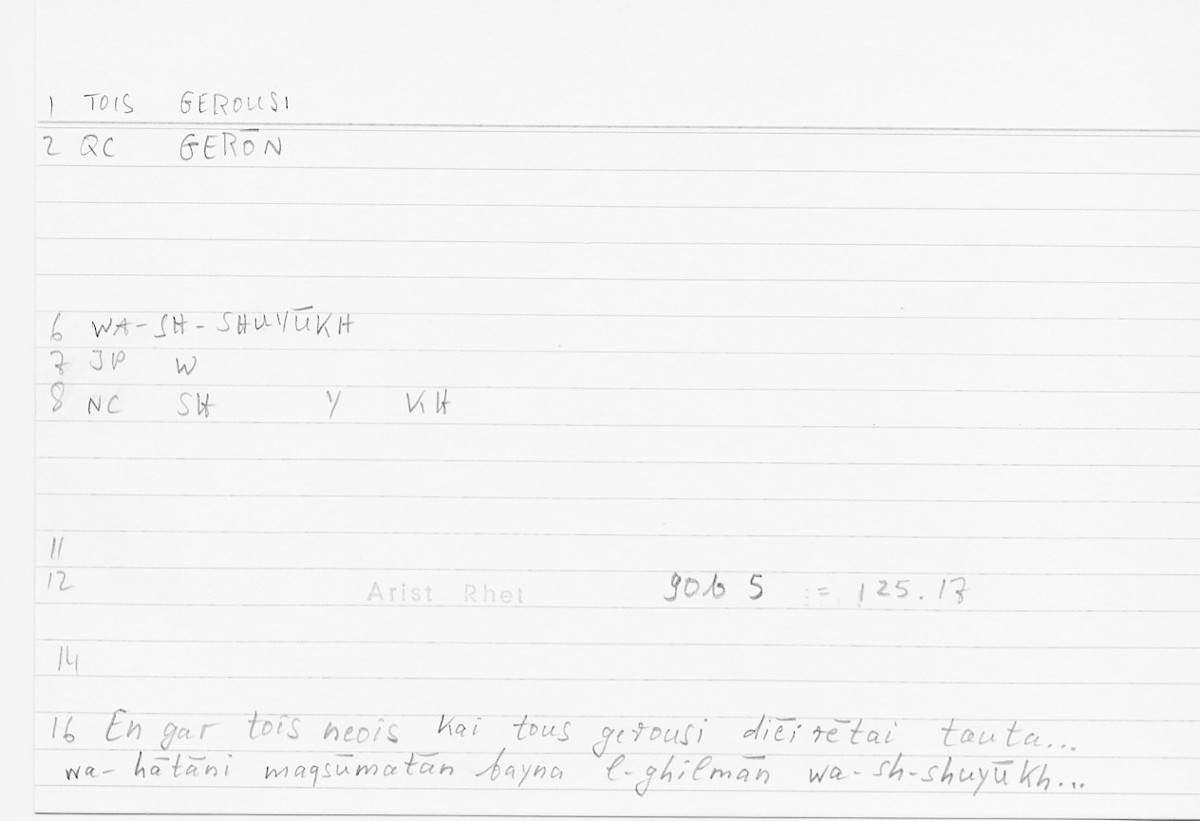 1 TOIS GEROUSI
2 QC GERŌN
6 WA-SH-SHUYŪKH
7 JP W
8 NC SH Y KH
11
12 Arist Rhet 90b 5 := 125.17
14
16 En gar tois neois kai tous gerousi diēirētai tauta...
wa-hātāni maqsūmatān bayna l-ghilmān wa-sh-shuyūkh...